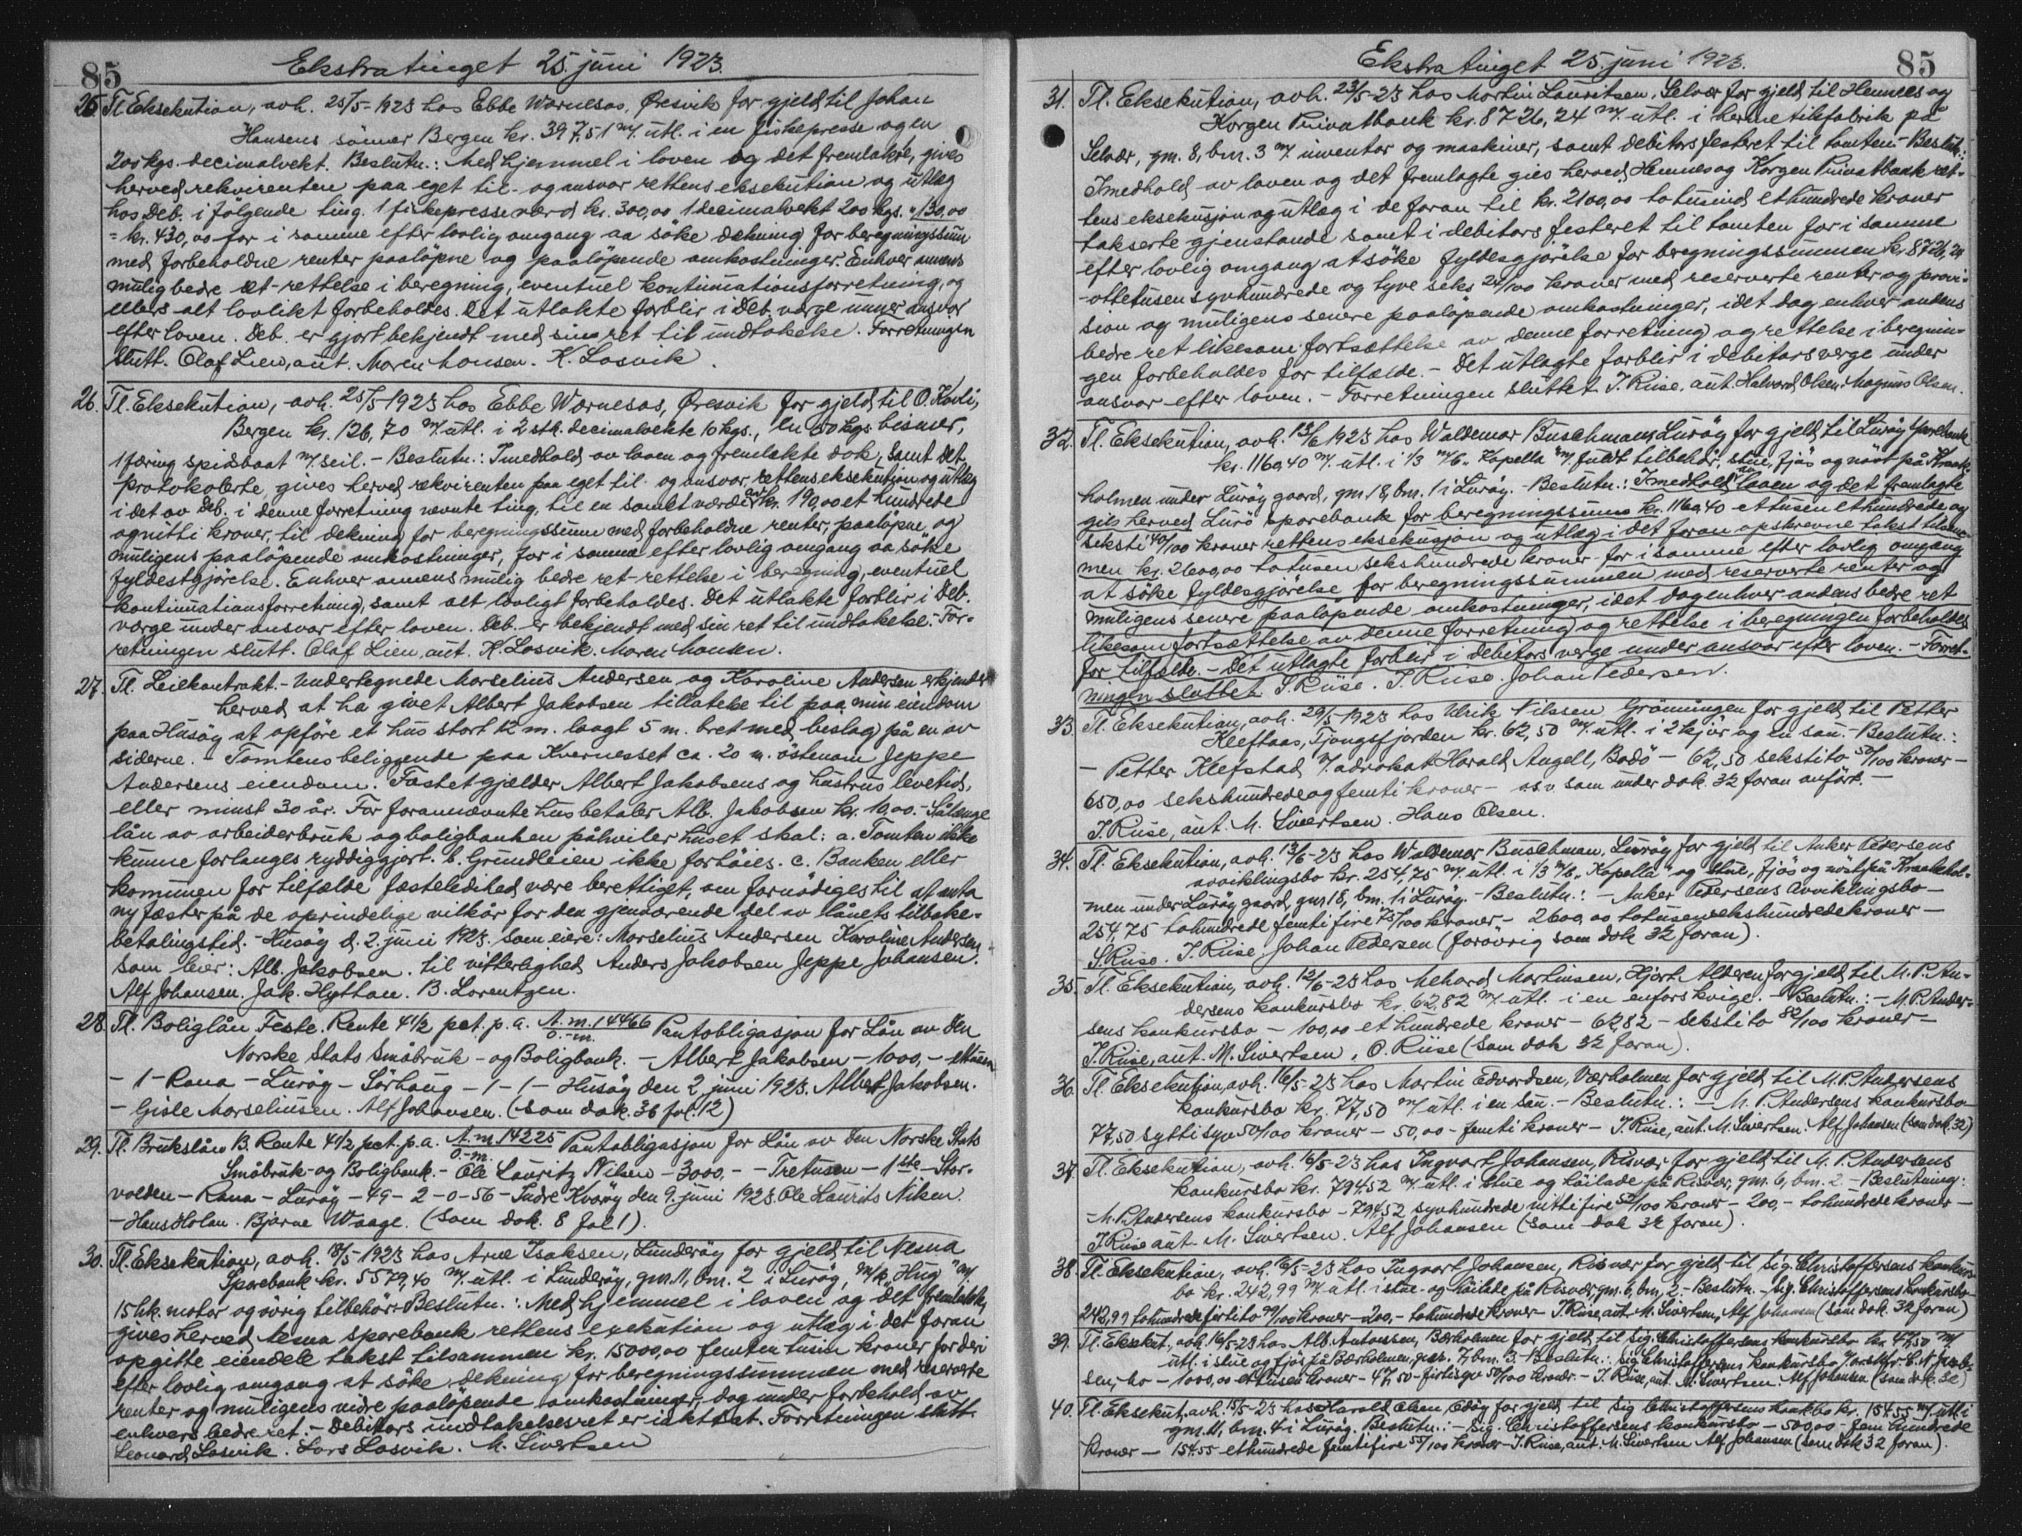 85 Ekstratinget 25. juni 1923.
25. Tl. Eksekution, avh. 25/5-1923 hos Ebbe Wornesos, Øresvik for gjeld til Johan
Hansens sönner Bergen kr. 397,51 m/. utl. i en fiskepresse og en
200 kgs. decimalvekt. Beslutn.: Med hjemmel i loven og det fremlakte, gives
herved rekvirenten paa eget til- og ansvar rettens eksekution og utlæg
hos Deb. i følgende ting. 1 fiskepresse værd kr. 300,00 1 decimalvekt 200 kgs. " 130,00
= kr. 430,00 for i samme efter lovlig omgang aa søke dekning for beregningssum
med forbeholdne renter paaløpne og paaløpende omkostninger. Enhver annens
mulig bedre ret - rettelse i beregning, eventuel kontinuationsforretning, og
ellers alt lovlikt forbeholdes. Det utlakte forblir i Deb. verge under ansvar
efter loven. Deb. er gjort bekjendt med sin ret til undtakelse. Forretningen
slutt. Olaf Lien, aut. Maren Monsen. K. Losvik.
26. Tl. Eksekution, avh. 25/5-1923 hos Ebbe Wornesos, Øresvik for gjeld til O. Kavli,
Bergen kr. 126,70 m/utl. i 2 stk. decimalvekte 10 kgs., en 60 kgs. bismer,
1 færing spidsbaat m/. seil. - Beslutn.: I medhold av loven og fremlakte dok, samt det
protokolerte, gives herved rekvirenten paa eget til- og ansvar, rettens eksekution og utlæg
i det av Deb. i denne forretning nevnte ting, til en samlet værdi av kr. 190,00 et hundrede
og nitti kroner, til dekning for beregningssum med forbeholdne renter, paaløpne og
muligens paaløpende omkostninger, for i samme efter lovlig omgang aa søke
fyldestgjörelse. Enhver annens mulig bedre ret - rettelse i beregning, eventuel
kontinuationsforretning, samt alt lovligt forbeholdes. Det utlakte forblir i Deb.
værge under ansvar efter loven. Deb. er bekjendt med sin ret til undtakelse. For-
retningen slutt. Olaf Lien, aut. K. Losvik. Maren Monsen.
27. Tl. Leiekontrakt. - Undertegnede Morselius Andersen og Karoline Andersen erkjender
herved at ha givet Albert Jakobsen tillatelse til paa min eiendom
paa Husöy at opföre et hus stort 12 m. langt 5 m. bret med beslag på en av
siderne. - Tomtens beliggende paa Kvernesset ca. 20 m. östenom Jeppe
Andersens eiendom. Fastet gjelder Albert Jakobsens og hustrus levetid,
eller minst 30 år. For forannævnte hus betaler Alb. Jakobsen kr. 10,00. - Sålænge
lån av arbeiderbruk og boligbanken påhviler huset skal: a. Tomten ikke
kunne forlanges ryddiggjort. b. Grundleien ikke forhöies. c. Banken eller
kommunen for tilfælde fæsteledihed være berettiget, om fornödiges til at anta
ny fæster på de oprindelige vilkår for den gjenværende del av lånets tilbake-
betalingstid. - Husöy d. 2. juni 1923. Som eiere: Morselius Andersen Karoline Andersen
som leier: Alb. Jakobsen. til vitterlighed Anders Jakobsen Jeppe Johansen.
Alf Johansen. Jak. Hyttan. B. Lorentzen.
28. Tl. Boliglån Feste. Rente 4 1/2 pct. p.a. A.m. 14466 Pantobligasjon for Lån av Den
O.-m.
Norske Stats Småbruk - og Boligbank. - Albert Jakobsen - 1000,- ettusen
- 1 - Rana - Luröy - Sörhaug - 1 - 1 - Husöy den 2. juni 1923. Albert Jakobsen.
- Gisle Morseliussen. Alf Johansen. (som dok. 36 fol. 12)
29. Tl. Brukslån B. Rente 4 1/2 pct. p.a. A.m. 14225 Pantobligasjon for Lån av Den Norske Stats
O.-m.
Småbruk- og Boligbank. - Ole Lauritz Nilsen - 3000,- - Tretusen - 1ste - Stor-
volden - Rana - Luröy - 49 - 2 - 0-56 - Indre Kvaröy den 9. juni 1923 Ole Laurits Nilsen
- Hans Holan. Bjarne Waage. (som dok. 8 fol 1).
30. Tl. Eksekution, avh. 18/5-1923 hos Arne Isaksen, Lunderöy for gjeld til Nesna
Sparebank kr. 5579,40 m/. utl. i Lunderöy, gn. 11, bn. 2 i Luröy, m/k "Hug" m/
15 hk. motor og övrig tilbehör. Beslutn.: Med hjemmel i loven og det fremlakte,
gives herved Nesna sparebank rettens exekution og utlæg i det foran
opgitte eiendele takst tilsammen kr. 15000,00 femten tusen kroner for deri
efter lovlig omgang at söke dekning for beregningssummen med reserverte
renter og muligens videre paalöpende omkostninger, dog under forbehold av
enhvers bedre ret. - Debitors undtakelsesret er iakttat. Forretningen slutt.
Leonard Losvik. Lars Losvik. M. Sivertsen

Ekstratinget 25. juni 1923. 85
31. Tl. Eksekution, avh. 23/5-23 hos Martin Lauritsen, Selvær for gjeld til Hemnes og
Korgen Privatbank kr. 8726,24 m/. utl. i hermetikfabrik på
Selvær, gn. 8, bn. 3 m/. inventar og maskiner, samt debitors festeret til tomten - Beslutn.:
I medhold av loven og det fremlagte gies herved Hemnes og Korgen Privatbank ret-
tens eksekusjon og utlæg i de foran til kr. 2100,00 totusind ethundrede kroner
takserte gjenstande samt i debitors festeret til tomten for i samme
efter lovlig omgang at söke fyldesgjörelse for beregningssummen kr. 8726,24
- ottetusen syvhundrede og tyve seks 24/100 kroner med reserverte renter og provi-
sion og muligens senere paalöpende omkostninger, idet dog enhver andens
bedre ret likesom fortsættelse av denne forretning og rettelse i beregnin-
gen forbeholdes for tilfælde. - Det utlagte forblir i debitors verge under
ansvar efter loven. - Forretningen sluttet. J. Riise, aut. Halvard Olsen. Magnus Olsen.
32. Tl. Eksekution, avh. 13/6 1923 hos Waldemar Buschmann, Luröy for gjeld til Luröy sparebank
kr. 1160,40 m/. utl. i 1/3 m/b "Kapella" m/ fuldt tilbehör, stue, fjös og naust på Kraak-
holmen under Luröy gaard, gn. 18, bn. 1 i Luröy. - Beslutn.: I medhold av loven og det fremlagte
gis herved Lurö sparebank for beregningssum kr. 1160,40 ettusen ethundrede og
seksti 40/100 kroner rettens eksekusjon og utlæg i det foran opskrevne takst tilsam-
men kr. 2600,00 totusen sekshundrede kroner for i samme efter lovlig omgang
at söke fyldesgjörelse for beregningssummen med reserverte renter og
muligens senere paalöpende omkostninger, idet dog enhver andens bedre ret
likesom fortsættelse av denne forretning og rettelse i beregningen forbeholdes
for tilfælde. - Det utlagte forblir i debitors verge under ansvar efter loven. - Forret-
ningen sluttet S. Riise. J. Riise. Johan Pedersen.
33. Tl. Eksekution, avh. 29/5-1923 hos Ulrik Nilssen Grönningen for gjeld til Petter
Kleftaas, Tjongsfjorden kr. 62,50 m/. utl. i 2 kjör og en sau. - Beslutn.:
- Petter Klefstad v/ advokat Harald Angell, Bodö - 62,50 sekstito 50/100 kroner -
650,00 sekshundredeogfemti kroner - osv. som under dok. 32 foran anfört. -
J. Riise, aut. M. Sivertsen. Hans Olsen.
34. Tl. Eksekution, avh. 13/6-23 hos Waldemar Buschman, Luröy for gjeld til Anker Pedersens
avviklingsbo kr. 254,75 m/. utl. i 1/3 m/b "Kapella" og stue, fjös og nöst på Kraakhol-
men under Luröy gaard, gn. 18, bn. 1 i Luröy. - Beslutn.: - Anker Pedersens avviklingsbo -
254,75 tohundrede femtifire 75/100 kroner - 2600,00 totusensekshundredekroner -
S. Riise. J. Riise Johan Pedersen (forövrig som dok 32 foran).
35. Tl. Eksekution, avh. 12/6-23 hos Mehard Martinsen, Hjort Alderen for gjeld til M. P. An-
dersens konkursbo kr. 62,82 m/. utl. i en enfors kvige. - Beslutn.: - M. P. Ander-
sens konkursbo - 100,00 et hundrede kroner - 62,82 - sekstito 82/100 kroner -
J. Riise, aut. M. Sivertsen, O. Riise (som dok 32 foran).
36. Tl. Eksekution, avh. 16/5-23 hos Martin Edvardsen, Værholmen for gjeld til M. P. Andersens
konkursbo kr. 77,50 m/ utl. i en sau. - Beslutn.: - M. P. Andersens konkursbo -
77,50 syttisyv 50/100 kroner - 50,00 - femti kroner - J. Riise, aut. M. Sivertsen. Alf Johansen (som dok. 32)
37. Tl. Eksekution, avh. 16/5-23 hos Ingvart Johansen, Risvær for gjeld til M. P. Andersens
konkursbo kr. 794,52 m/. utl. i stue og höilade på Risvær, gn. 6, bn. 2. - Beslutning:
- M. P. Andersens konkursbo - 794,52 syvhundrede nittifire 52/100 kroner - 200,- tohundrede kroner -
J. Riise aut. M. Sivertsen. Alf Johansen (som dok 32 foran).
38. Tl. Eksekution, avh. 16/5-23 hos Ingvart Johansen, Risvær for gjeld til Sig. Christoffersens konkurs-
bo kr. 242,99 m/. utl. i stue og höilade på Risvær, gn. 6, bn. 2. - Beslutn. - Sig. Christoffersens konkursbo -
242,99 tohundrede förtito 99/100 kroner - 200,- tohundrede kroner - J. Riise, aut. M. Sivertsen, Alf Johansen (som dok. 32 foran)
39. Tl. Eksekut., avh. 16/5-23 hos Alb. Antonssen, Bærholmen for gjeld til Sig. Christoffersens konkursbo kr. 47,50 m/
utl. i stue og fjös på Bærholmen, gn. 7, bn. 3. - Beslutn.: Sig. Christoffersens konkursbo
sen, bo - 1000,00 ettusen kroner - 47,50 - förtisyv 50/100 kroner. - J. Riise, aut. M. Sivertsen. Alf Johansen (som dok. 32)
40. Tl. Eksekut., avh. 15/5-23 hos Harald Olsen for gjeld til Sig Christoffersens konkbo kr. 154,55 m/. utl. i
gn. 11, bn. 4 i Luröy. Beslutn.: - Sig. Christoffersens konkursbo - 500,00 - fem hundrede
kroner - 154,55 ethundrede femtifire 55/100 kroner - J. Riise, aut. M. Sivertsen Alf Johansen (som dok 32 foran).